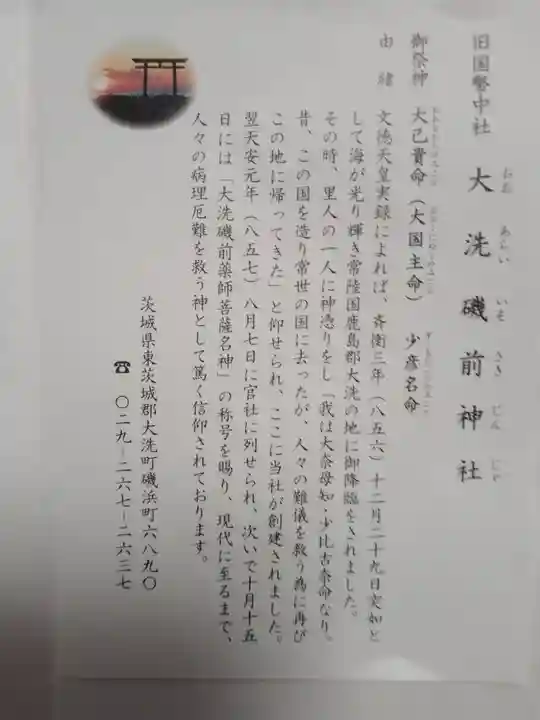 旧国幣中社
大洗磯前神社
おお あらい いそ さき じん じゃ
御祭神 大己貴命(大国主命) 少彦名命
由緒 文徳天皇実録によれば、斉衡三年(八五六)十二月二十九日突如と
して海が光り輝き常陸国鹿島郡大洗の地に御降臨をされました。
その時、里人の一人に神憑りをし「我は大奈母知・少比古奈命なり。
昔、この国を造り常世の国に去ったが、人々の難儀を救う為に再び
この地に帰ってきた」と仰せられ、ここに当社が創建されました。
翌天安元年(八五七)八月七日に官社に列せられ、次いで十月十五
日には「大洗磯前薬師菩薩名神」の称号を賜り、現代に至るまで、
人々の病理厄難を救う神として篤く信仰されております。
茨城県東茨城郡大洗町磯浜町六八九〇
☎ 〇二九-二六七-二六三七